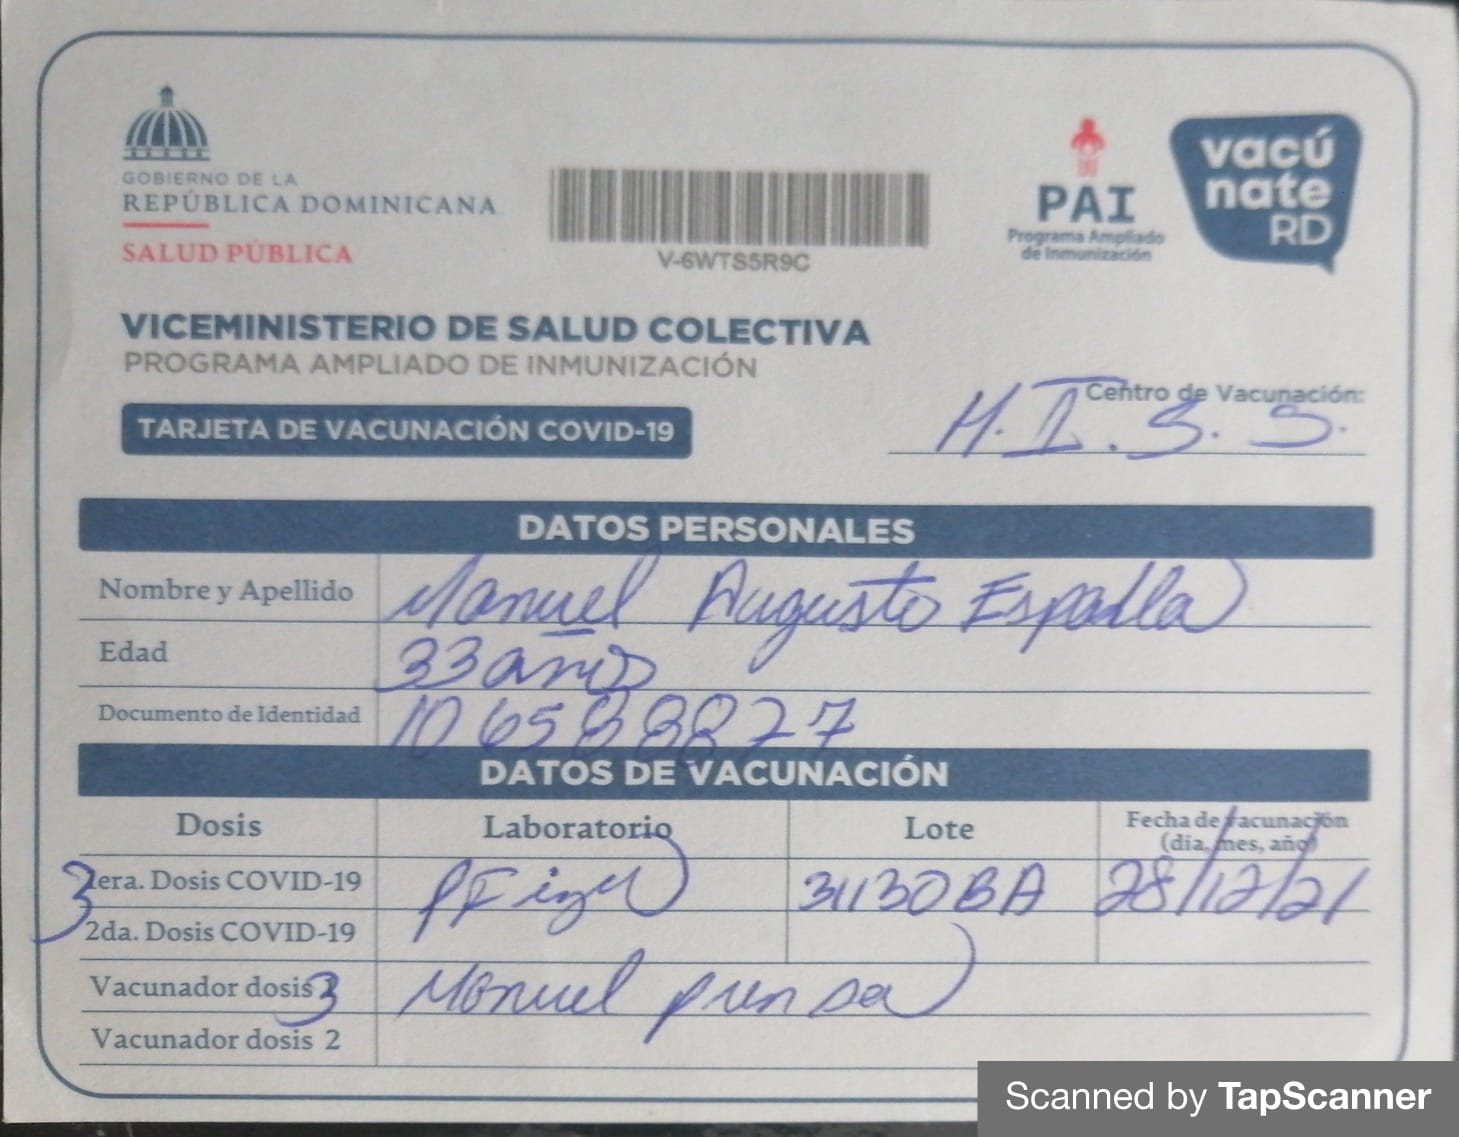 GOBIERNO DE LA
REPÚBLICA DOMINICANA
SALUD PÚBLICA
V-6WTS5R9C
PAI
Programa Ampliado
de Inmunización
vacú
nate
RD
VICEMINISTERIO DE SALUD COLECTIVA
PROGRAMA AMPLIADO DE INMUNIZACIÓN
TARJETA DE VACUNACIÓN COVID-19
Centro de Vacunación:
H.I.S.S.
DATOS PERSONALES
Nombre y Apellido Manuel Augusto
Edad 33 años
Documento de Identidad
DATOS DE VACUNACIÓN
Dosis Laboratorio Lote Fecha de vacunación
(día, mes, año)
3 1era. Dosis COVID-19 Pfizer 31130BA 28/12/21
2da. Dosis COVID-19
Vacunador dosis 3 Manuel
Vacunador dosis 2
Scanned by TapScanner